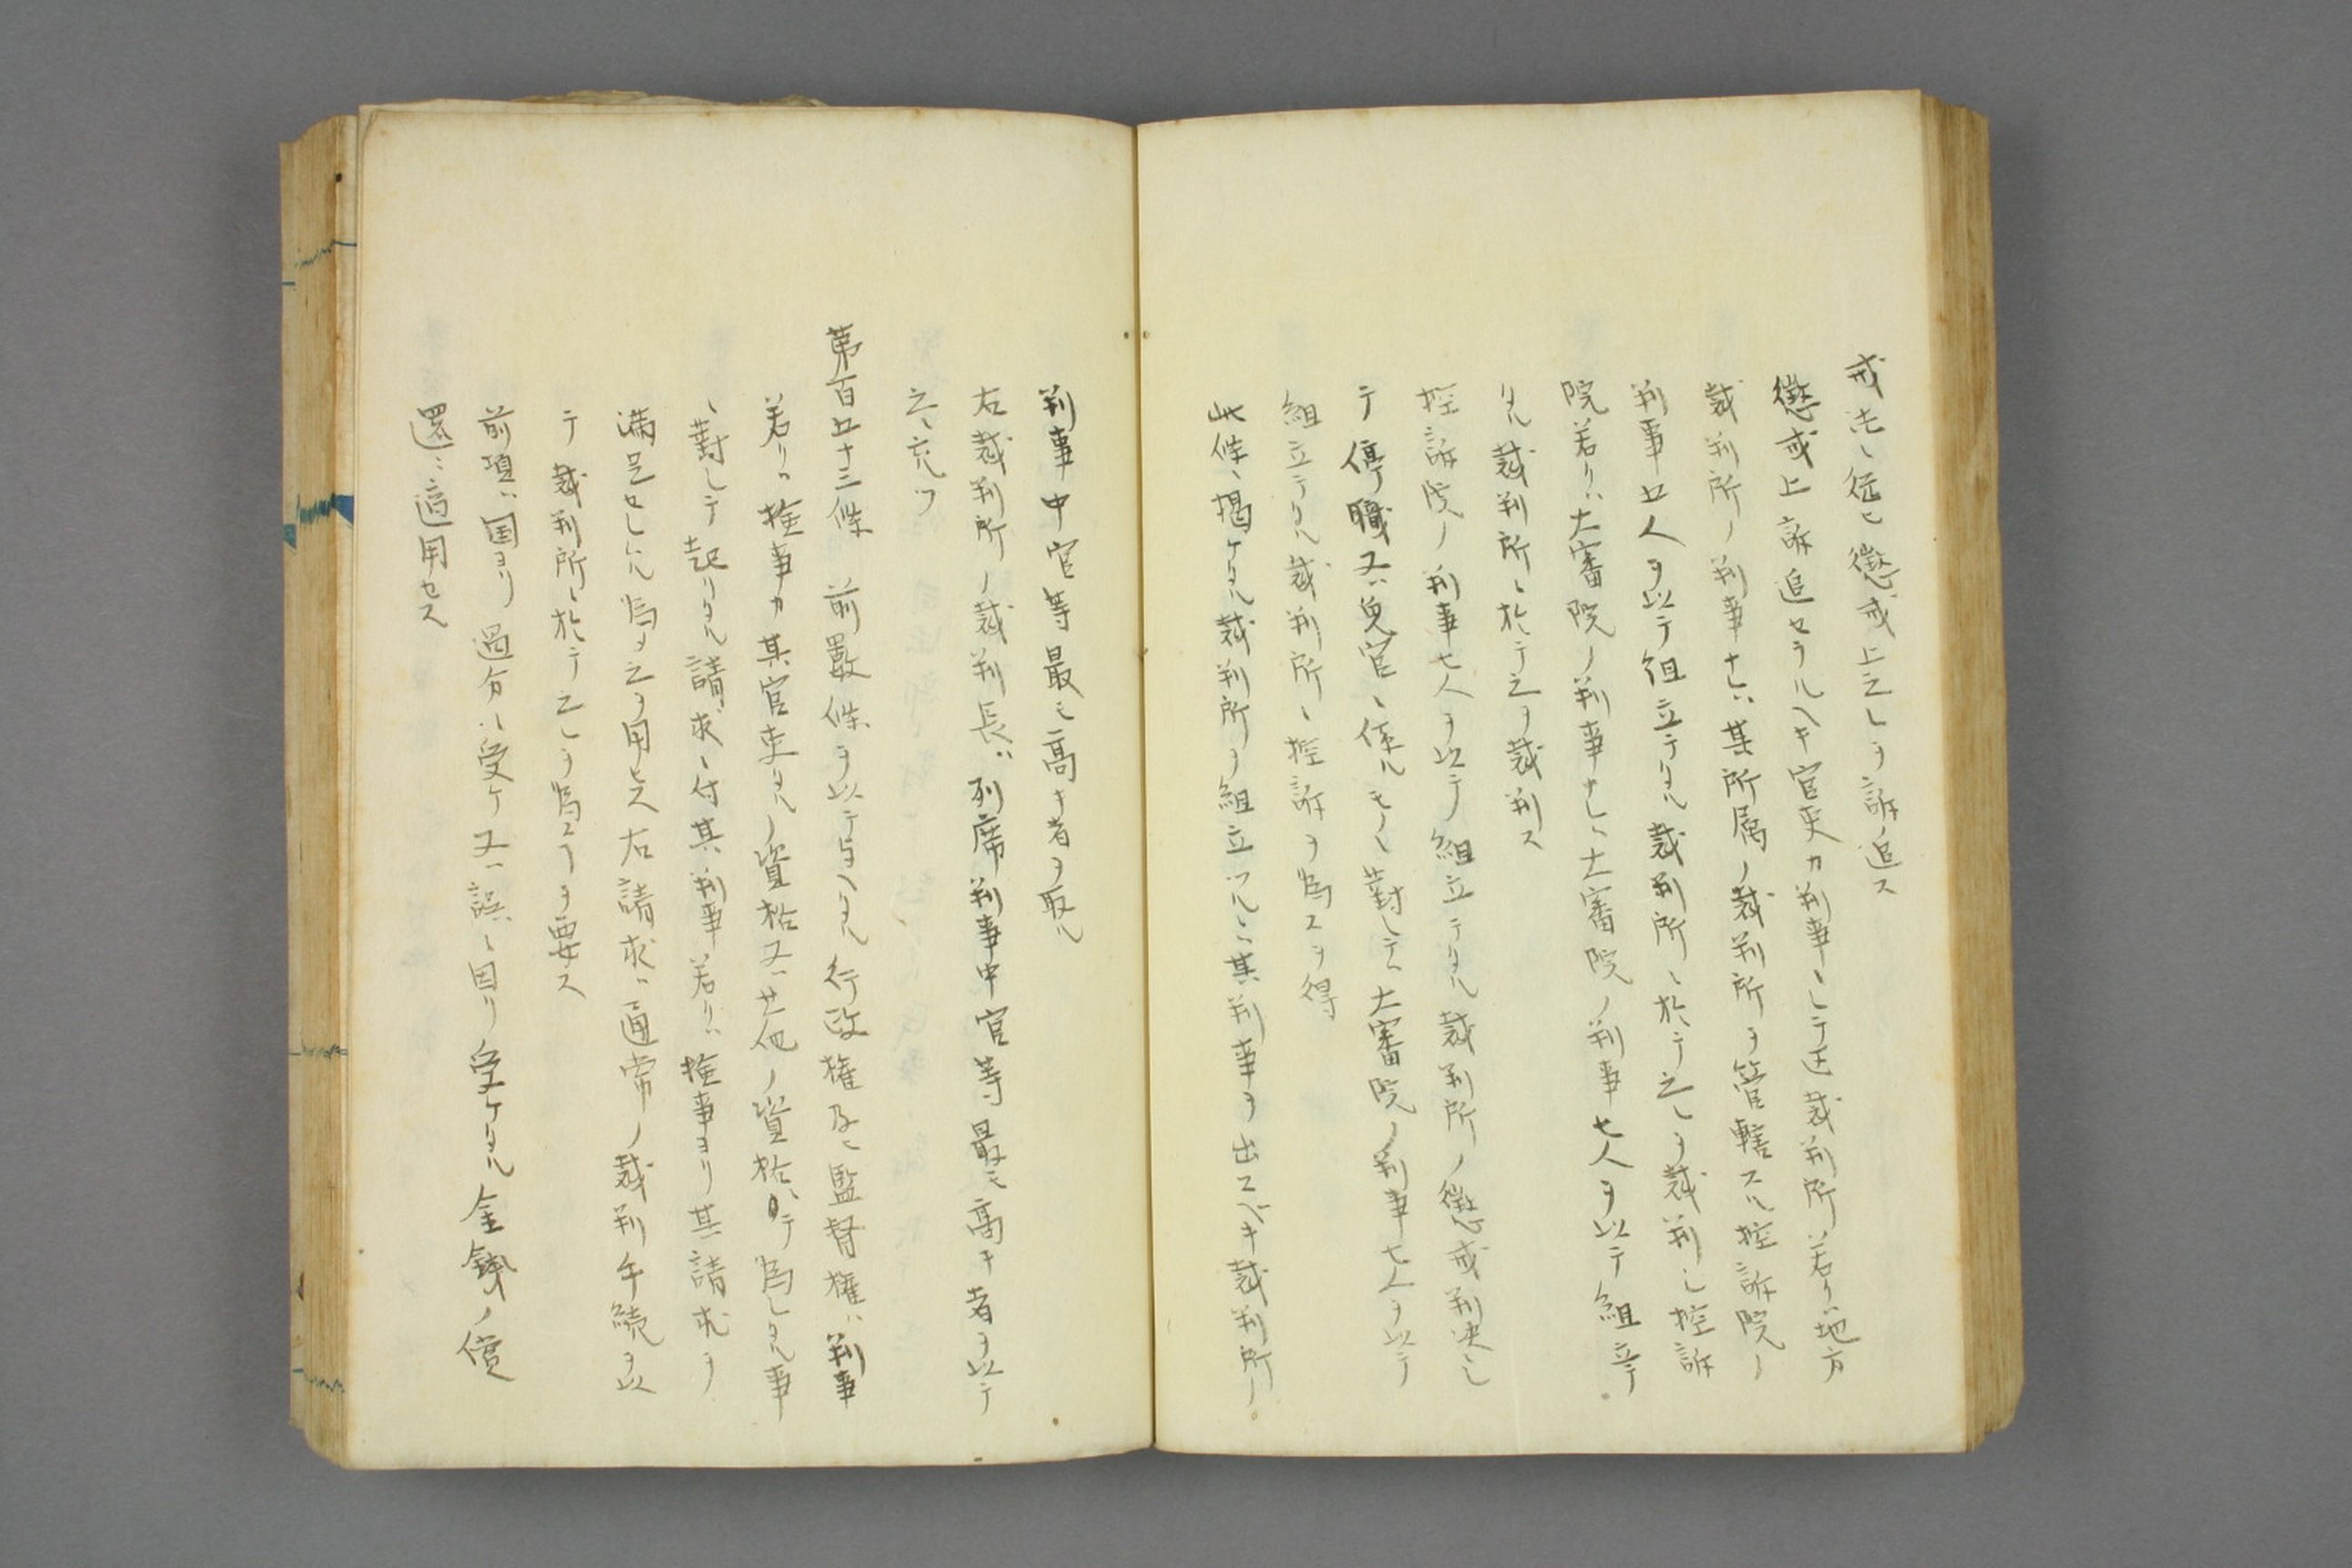 戒法ニ従ヒ懲戒上之レヲ訴追ス
懲戒上訴追セラルヘキ官吏カ判事ニシテ区裁判所若クハ地方
裁判所ノ判事ナレハ其所属ノ裁判所ヲ管轄スル控訴院ノ
判事五人ヲ以テ組立テタル裁判所ニ於テ之レヲ裁判シ控訴
院若クハ大審院ノ判事ナレハ大審院ノ判事七人ヲ以テ組立テ
タル裁判所ニ於テ之ヲ裁判ス
控訴院ノ判事七人ヲ以テ組立テタル裁判所ノ懲戒判決ニシ
テ停職又ハ免官ニ係ルモノニ対シテハ大審院ノ判事七人ヲ以テ
組立テタル裁判所ニ控訴ヲ為スヲ得
此條ニ掲ケタル裁判所ヲ組立ツルニハ其判事ヲ出スベキ裁判所ノ
判事中官等最モ高キ者ヲ取ル
右裁判所ノ裁判長ハ列席判事中官等最モ高キ者ヲ以テ
之ニ充ツ
第百五十三條 前数條ヲ以テ与ヘタル行政権及ヒ監督権ハ判事
若クハ検事カ其官吏タルノ資格又ハ其他ノ資格ニテ為シタル事
ニ対シテ起リタル請求ニ付其判事若クハ検事ヨリ其請求ヲ
満足セシムル為メ之ヲ用ヒス右請求ハ通常ノ裁判手続ヲ以
テ裁判所ニ於テ之レヲ為スヿヲ要ス
前項ハ国ヨリ過分ニ受ケ又ハ誤ニ因リ受ケタル金銭ノ償
還ニ適用セス